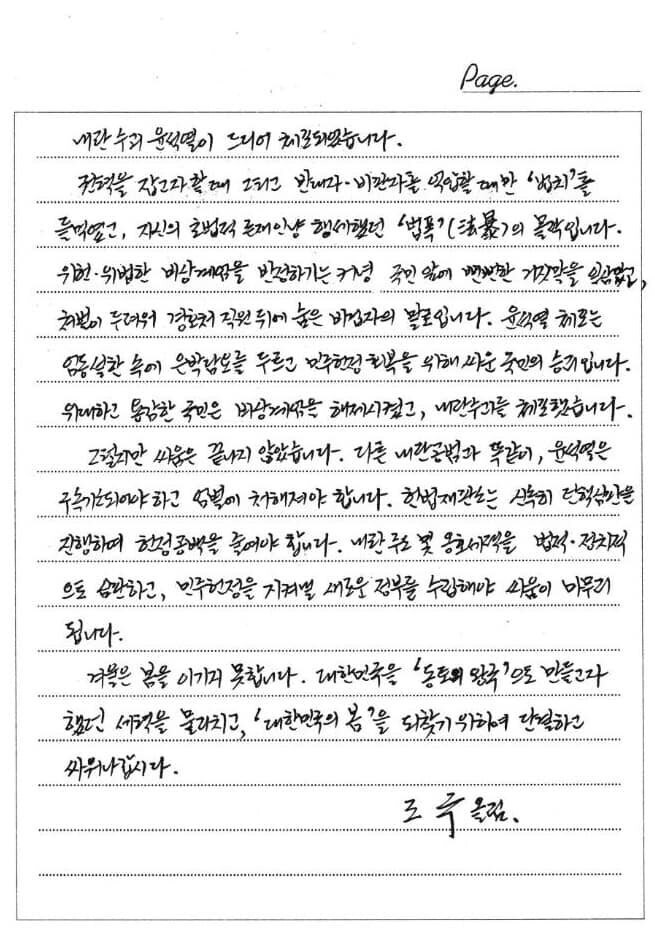 Page.
내란 수괴 윤석열이 드디어 체포되었습니다.
권력을 잡고자 할 때 그리고 반대자·비판자를 억압할 때만 '법치'를
들먹였고, 자신의 초법적 존재인냥 행세했던 '법폭'(法暴)의 몰락입니다.
위헌·위법한 비상계엄을 반성하기는커녕 국민 앞에 뻔뻔한 거짓말을 일삼았고,
처벌이 두려워 경호처 직원 뒤에 숨은 비겁자의 말로입니다. 윤석열 체포는
엄동설한 속에 은박담요를 두르고 민주헌정 회복을 위해 싸운 국민의 승리입니다.
위대하고 용감한 국민은 비상계엄을 해제시켰고, 내란수괴를 체포했습니다.
그렇지만 싸움은 끝나지 않았습니다. 다른 내란공범과 똑같이, 윤석열은
구속기소되어야 하고 엄벌에 처해져야 합니다. 헌법재판소는 신속히 탄핵심판을
진행하여 헌정공백을 줄여야 합니다. 내란 주도 및 옹호세력을 법적·정치적
으로 심판하고, 민주헌정을 지켜낼 새로운 정부를 수립해야 싸움이 마무리
됩니다.
겨울은 봄을 이기지 못합니다. 대한민국을 '동토의 왕국'으로 만들고자
했던 세력을 물리치고, '대한민국의 봄'을 되찾기 위하여 단결하고
싸워나갑시다.
조국 올림.